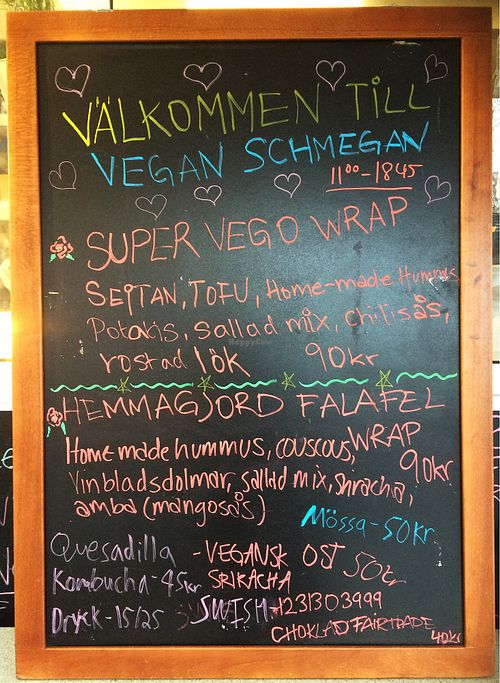 VÄLKOMMEN TILL
VEGAN SCHMEGAN
11⁰⁰-18⁴⁵
SUPER VEGO WRAP
SEJTAN, TOFU, Home-made Hummus
Potatis, sallad mix, chilisås,
rostad lök 90kr
HEMMAGJORD FALAFEL
WRAP
Home made hummus, couscous, 90kr
Vinbladsdolmar, sallad mix, Sriracha,
amba (mangosås)
Mössa-50kr
Quesadilla - VEGANSK OST 50kr
SRIRACHA
Kombucha-45kr
Dryck-15/25 SWISH 1231303999
CHOKLAD FAIRTRADE 40kr
HappyCow